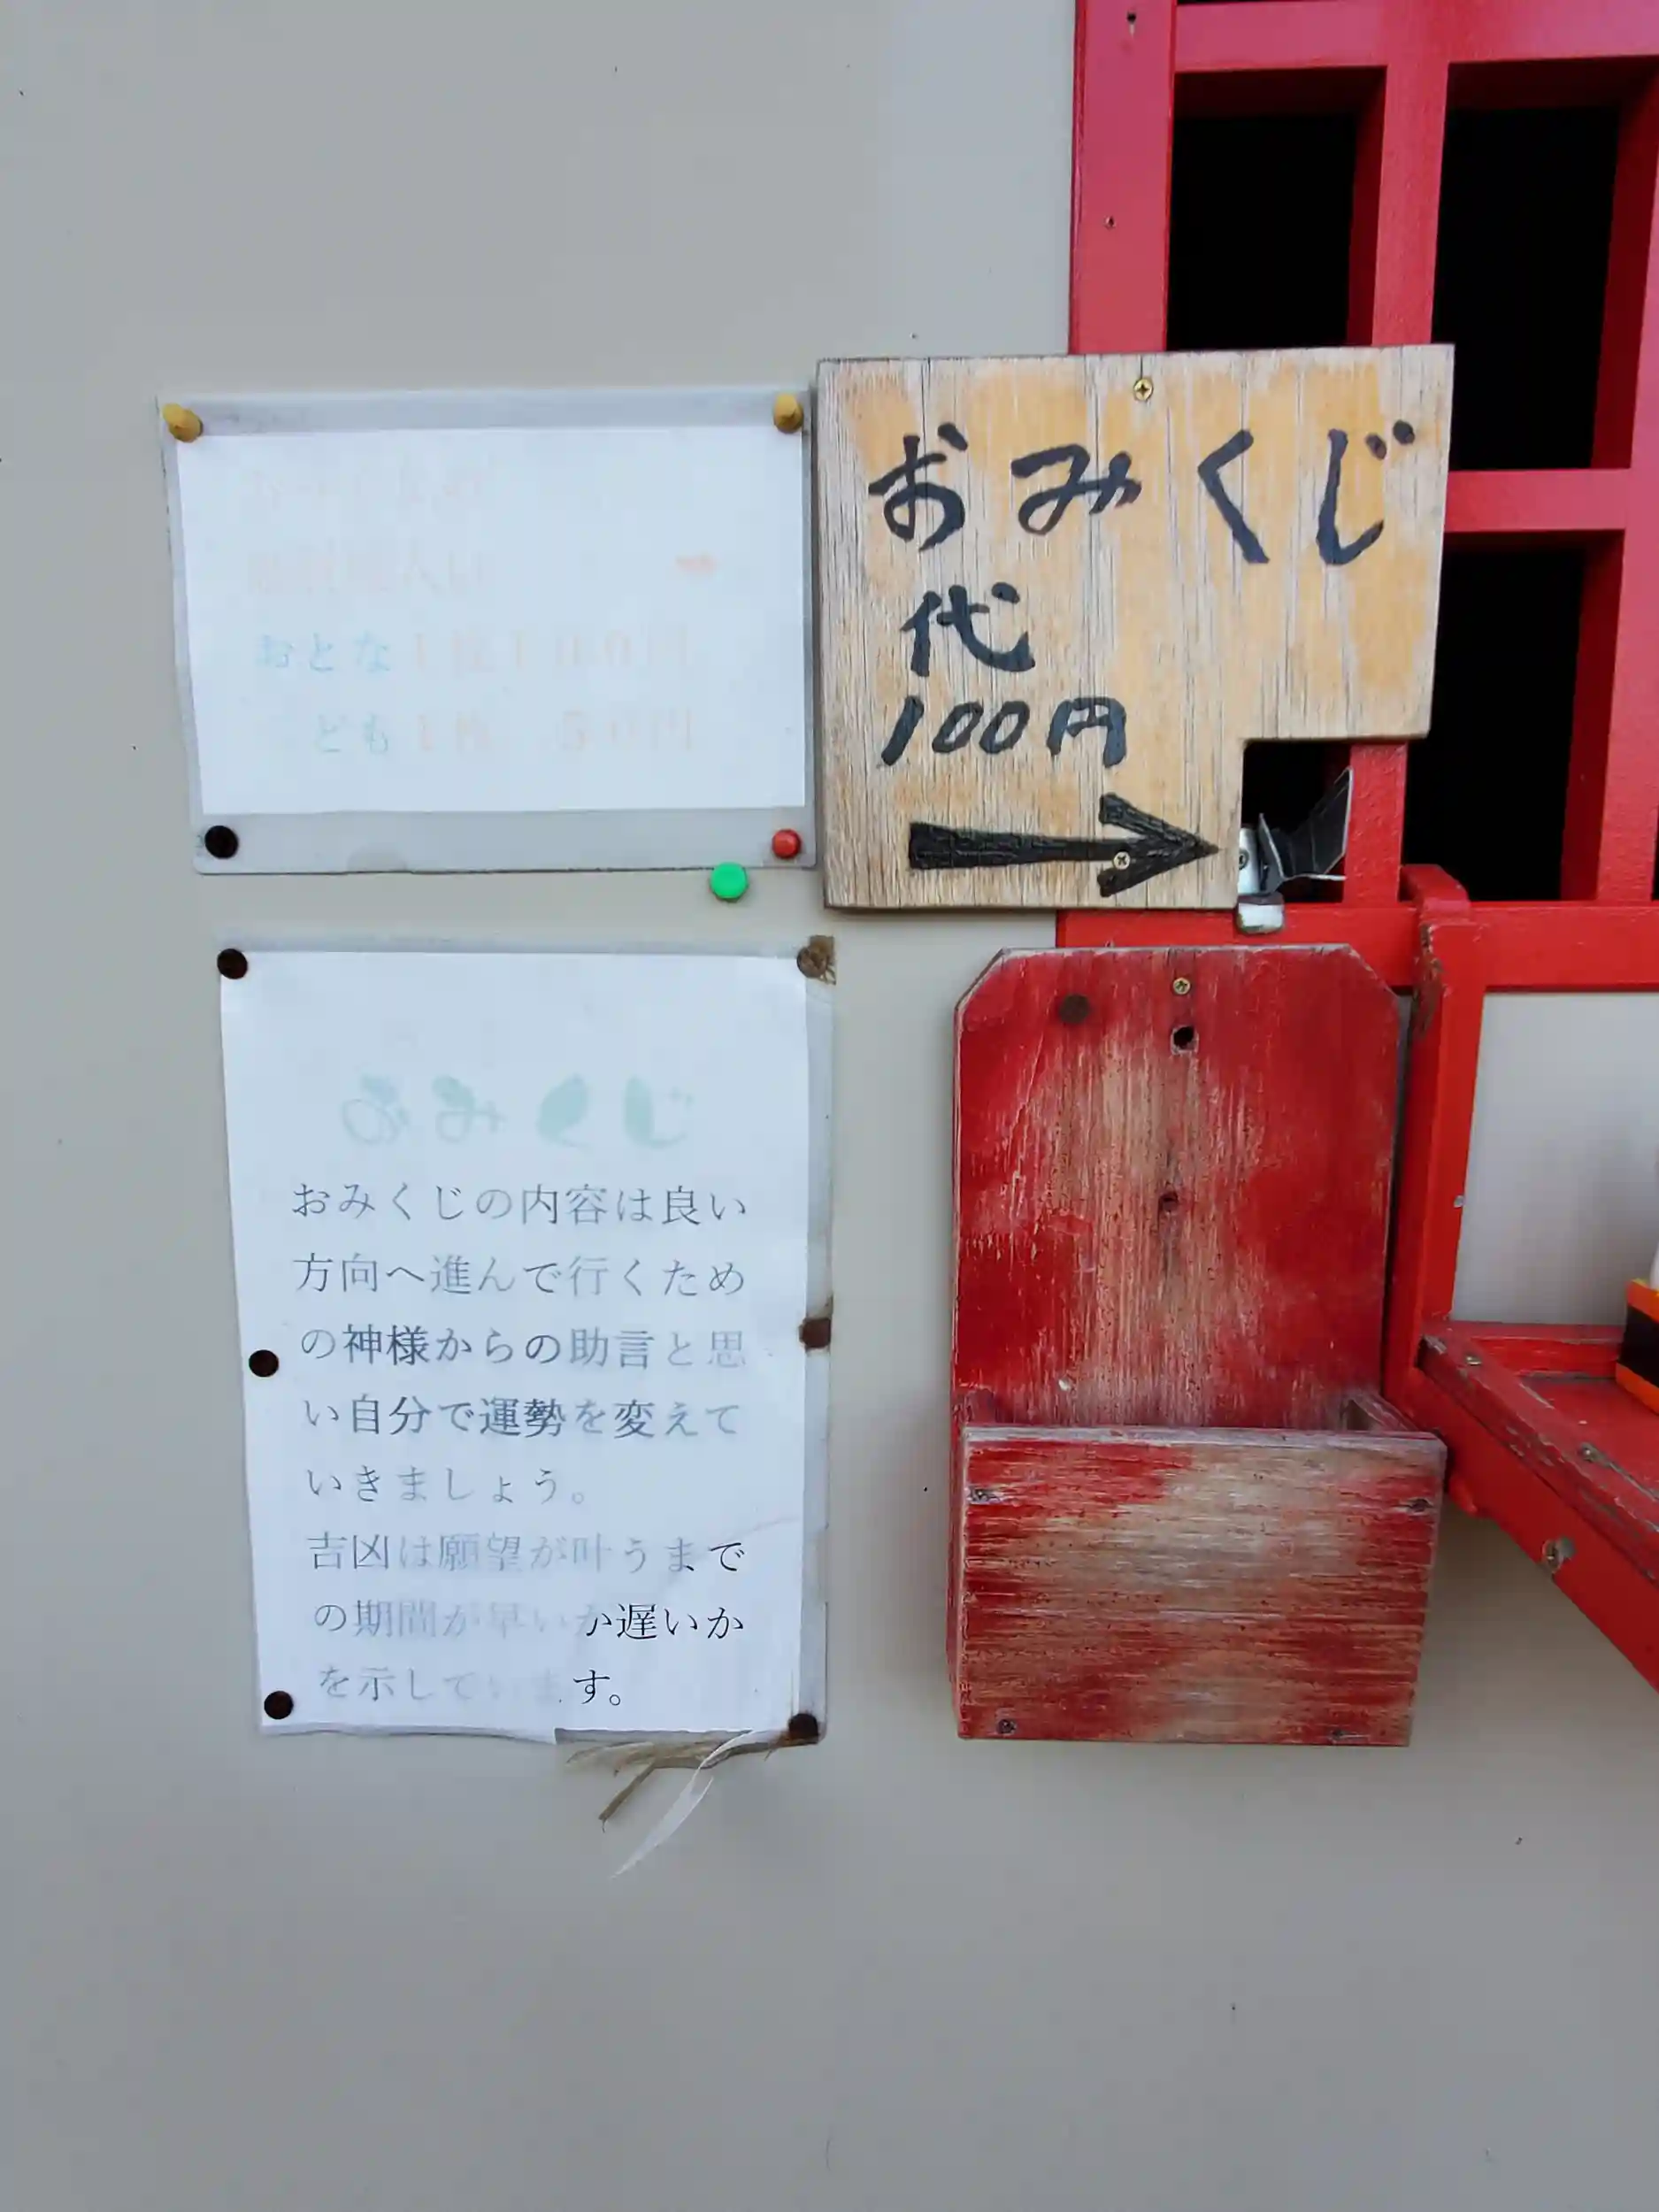 おとな1枚100円
ども1枚 50円
おみくじ
代
100円
おみくじの内容は良い
方向へ進んで行くため
の神様からの助言と思
い自分で運勢を変えて
いきましょう。
吉凶は願望が叶うまで
の期間が早いか遅いか
を示しています。